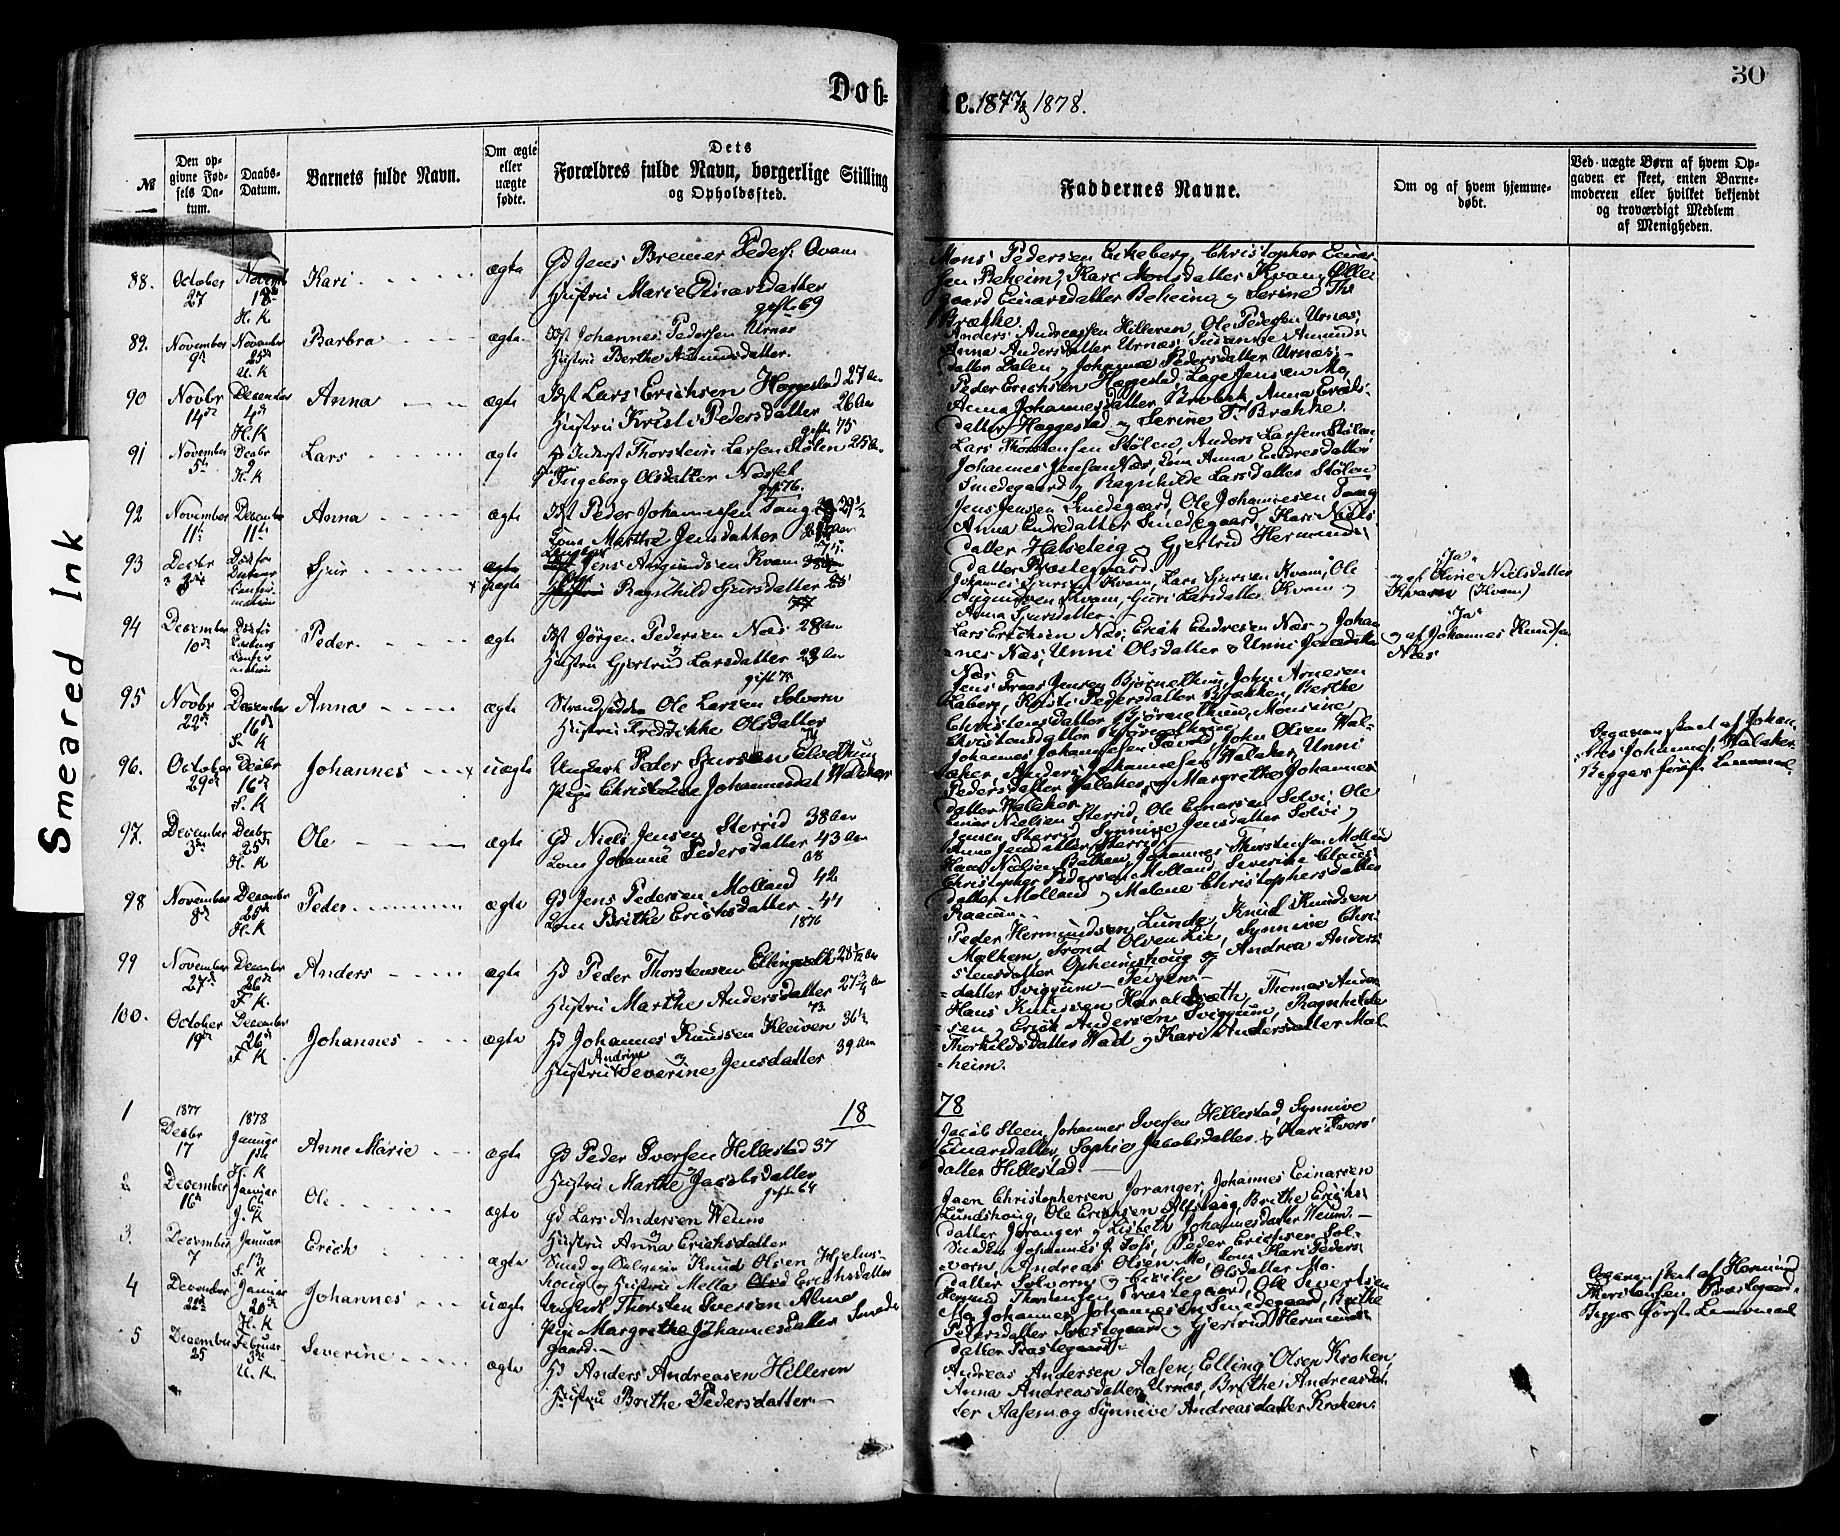 Smeared Ink
30
Dob-
te. 1877 & 1878.
№
Den op-
givne Fød-
sels Da-
tum.
Daabs-
Datum.
Barnets fulde Navn.
Om ægte
eller
uægte
fødte.
Dets
Forældres fulde Navn, borgerlige Stilling
og Opholdssted.
Faddernes Navne.
Om og af hvem hjemme-
døbt.
Ved uægte Børn af hvem Op-
gaven er skeet, enten Barne-
moderen eller hvilket bekjendt
og troværdigt Medlem
af Menigheden.
88. October 27 Novemb 18 H. K Kari ægte
Gd Jens Bremer Peders: Qvam
Hustru Marie Einarsdatter
gift 69
Mons Pedersen Eikeberg, Christopher Einar-
sen Beheim, Kari Monsdatter Kvam, Olle-
gaard Einarsdatter Beheim og Serine Th:
Brække.
89. November 9 November 25 U. K Barbra ægte
Johannes Pedersen Urnæs
Hustru Berthe Amundsdatter.
Anders Andreassen Hilleren, Ole Pedersen Urnæs,
Anna Andersdatter Urnæs, Susanne Amunds-
datter Dalen og Johanne Pedersdatter Urnæs.
90 Novbr 14 December 4 H. K Anna ægte
Lars Erichsen Haggestad 27 Aar
Hustru Kristi Pedersdatter 26 Aar
gift 75
Peder Erichsen Haggestad, Lage Jensen Mo,
Anna Johannesdatter Brobak, Anna Erichs-
datter Haggestad og Serine T. Brække.
91 November 5 Decbr 9 H. K Lars ægte
Inderst Thorstein Larsen Stølen 25 Aar
Ingeborg Olsdatter Næset
gift 76.
Lars Thorstensen Stølen, Anders Larsen Stølen,
Johannes Jensen Næs, Kone Anna Endresdatter
Smedegaard og Ragnhilde Larsdatter Stølen
92 November 11 December 11 Anna ægte
Peder Johannesen Tang 29 1/2
Kone Marthe Jensdatter
Jens Jensen Smedegaard, Ole Johannesen Tang
Anna Endredatter Smedegaard, Kari Niels-
datter Halsteig og Gjertrud Hermunds-
datter Præstegaard.
93 Decbr 3 Sjur uægte
Jens Aagundsen Kvam
Ragnhild Sjursdatter
Johannes Sjursen Kvam, Lars Sjursen Kvam, Ole
Augundsen Kvam, Guri Larsdatter Kvam og
Anna Sjursdatter.
"Ja"
og af Oline Nielsdatter
Kvam (Kvam)
94 December 10 Peder ægte
Jørgen Pedersen Næs 28 Aar
Hustru Gjertrud Larsdatter 23 Aar
gift 75
Lars Erichsen Næs, Erich Endresen Næs og Johan-
nes Næs, Unni Olsdatter & Unni Jensdatter
Næs.
"Ja"
og af Johannes Knudsen
Næs
95 Novbr 22 December 16 S. K Anna ægte
Strandsidder Ole Larsen Solvorn
Hustru Fredrikke Olsdatter
Jens Jensen Bjørnethun, John Arnesen
Kaberg, Kristi Pedersdatter Brækken, Berthe
Christensdatter Bjørnethun, Monsine
96. October 29 Decbr 16 S. K Johannes uægte
Ungkarl Peder Sjursen Elvethun
Pige Christine Johannesdat Walaker
Johannes Johannesen, John Olsen Wal-
aker, Anders Johannesen Walaker, Unni
Pedersdatter Walaker, og Margrethe Johannes-
datter Walaker
Opgaven skeet af Johan-
nes Johannes: Walaker.
Begges første Leiermaal.
97. December 3 Decbr 25 H. K Ole ægte
Gd Niels Jensen Sterrid 38 Aar
Kone Johanne Pedersdatter 43 Aar
Einar Nielsen Sterrid, Ole Einarsen Solvi, Ole
Jensen Sterrid, Synnive Jensdatter Solvi og
Anna Jensdatter Sterrid
98 November 8 December 25 H. K Peder ægte
Gd Jens Pedersen Molland 42
Kone Brithe Erichsdatter 44
1876
Hans Nielsen Bakken, Johannes Thorstensen Molland
Christopher Pedersen Molland, Severine Claus-
datter Molland og Malene Christophersdatter
99 November 27 December 26 F. K. Anders ægte
Peder Thorstensen 28 1/2 Aar
Hustru Marthe Andersdatter 27 3/4 Aar
73
Peder Hermundsen Lunde, Knud Knudsen
Malhem, Trond Olsen Lie, Synnive Chri-
stensdatter Opheimshoug og Andrea Anders-
datter Sviggum - Teigen.
100. October 19 December 26 F. K Johannes ægte
Johannes Knudsen Kleiven 36 1/2
Andrine
Hustru Severine Jensdatter 39 Aar
Hans Knudsen Haraldsæth, Thomas Ander-
sen og Erich Andersen Sviggum, Ragnhilde
Thorkildsdatter Wad og Kari Andersdatter Mal-
heim.
18 78
1 1877 Decbr 17 1878 Januar 1 H. K Anne Marie ægte
Gd Peder Iversen Hillestad 37
Hustru Marthe Jacobsdatter
gift 64
Jacob Steen, Johannes Iversen Hillestad, Synnive
Einarsdatter, Sophie Jacobsdatter & Kari Ivers-
datter Hillestad.
2 December 16 Januar 6 J. K Ole ægte
Gd Lars Andersen Weum
Hustru Anna Erichsdatter
Jaen Christophersen Joranger, Johannes Einarsen
Lundshoug, Ole Erichsen Alsteig, Brithe Erichs-
datter Joranger og Lisbeth Johannesdatter Weum.
3. December 7 Januar 13 S. K Erich ægte
Smed og Knud Olsen Hjelms-
houg og Hustru Mella Erichsdatter
Johannes J. Tofs, Peder Erichsen Sol-
vorn, Andreas Olsen Mo, Kone Kari Peders-
datter Solvorn og Cecilie Olsdatter Mo.
4 December 22 Januar 20 H. K Johannes uægte
Ungkarl Thorsten Iversen Alme
Pige Margrethe Johannesdatter Smede-
gaard.
Hermund Thorstensen Præstegaard, Ole Sivertsen
Mo, Johannes Johannesen Smedegaard, Brithe
Pedersdatter Præstegaard og Gjertrud Hermunds-
datter Præstegaard.
Opgaven skeet af Hermund
Thorstensen Præstegaard.
Begges første Leiermaal
5 December 25 Februar 3 U. K. Severine ægte
Anders Andreasen Hilleren
Hustru Brithe Pedersdatter.
Andreas Andersen Aasen, Elling Olsen Kroken,
Anna Andreasdatter Urnæs, Brithe Andreasdat-
ter Aasen og Synnive Andreasdatter Kroken.